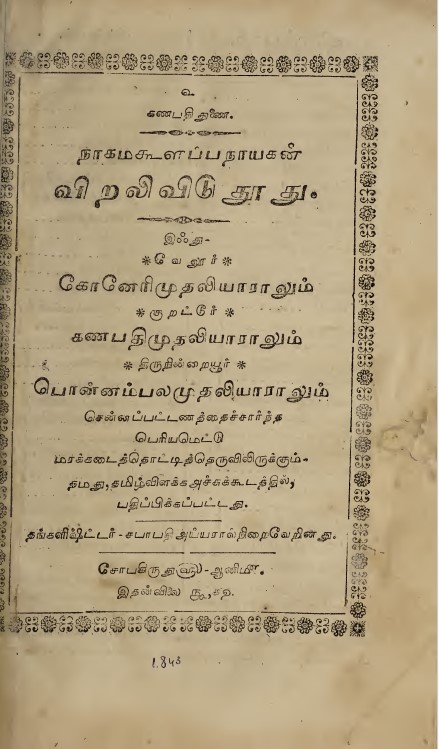 உ
கணபதி துணை.
நாகமகூளப்பநாயகன்
விறலிவிடுதூது.
இஃது-
* வேலூர் *
கோனேரிமுதலியாராலும்
* குறட்டூர் *
கணபதிமுதலியாராலும்
* திருநின்றையூர் *
பொன்னம்பலமுதலியாராலும்
சென்னப்பட்டணத்தைச்சார்ந்த
பெரியமெட்டு
மரக்கடைத்தொட்டித்தெருவிலிருக்கும்-
தமது, தமிழ்விளக்கஅச்சுக்கூடத்தில்,
பதிப்பிக்கப்பட்டது.
சபாபதி அய்யரால்நிறைவேறினது.
சோபகிருது௵-ஆனி௴.
இதன்விலை ரூ,
1.843